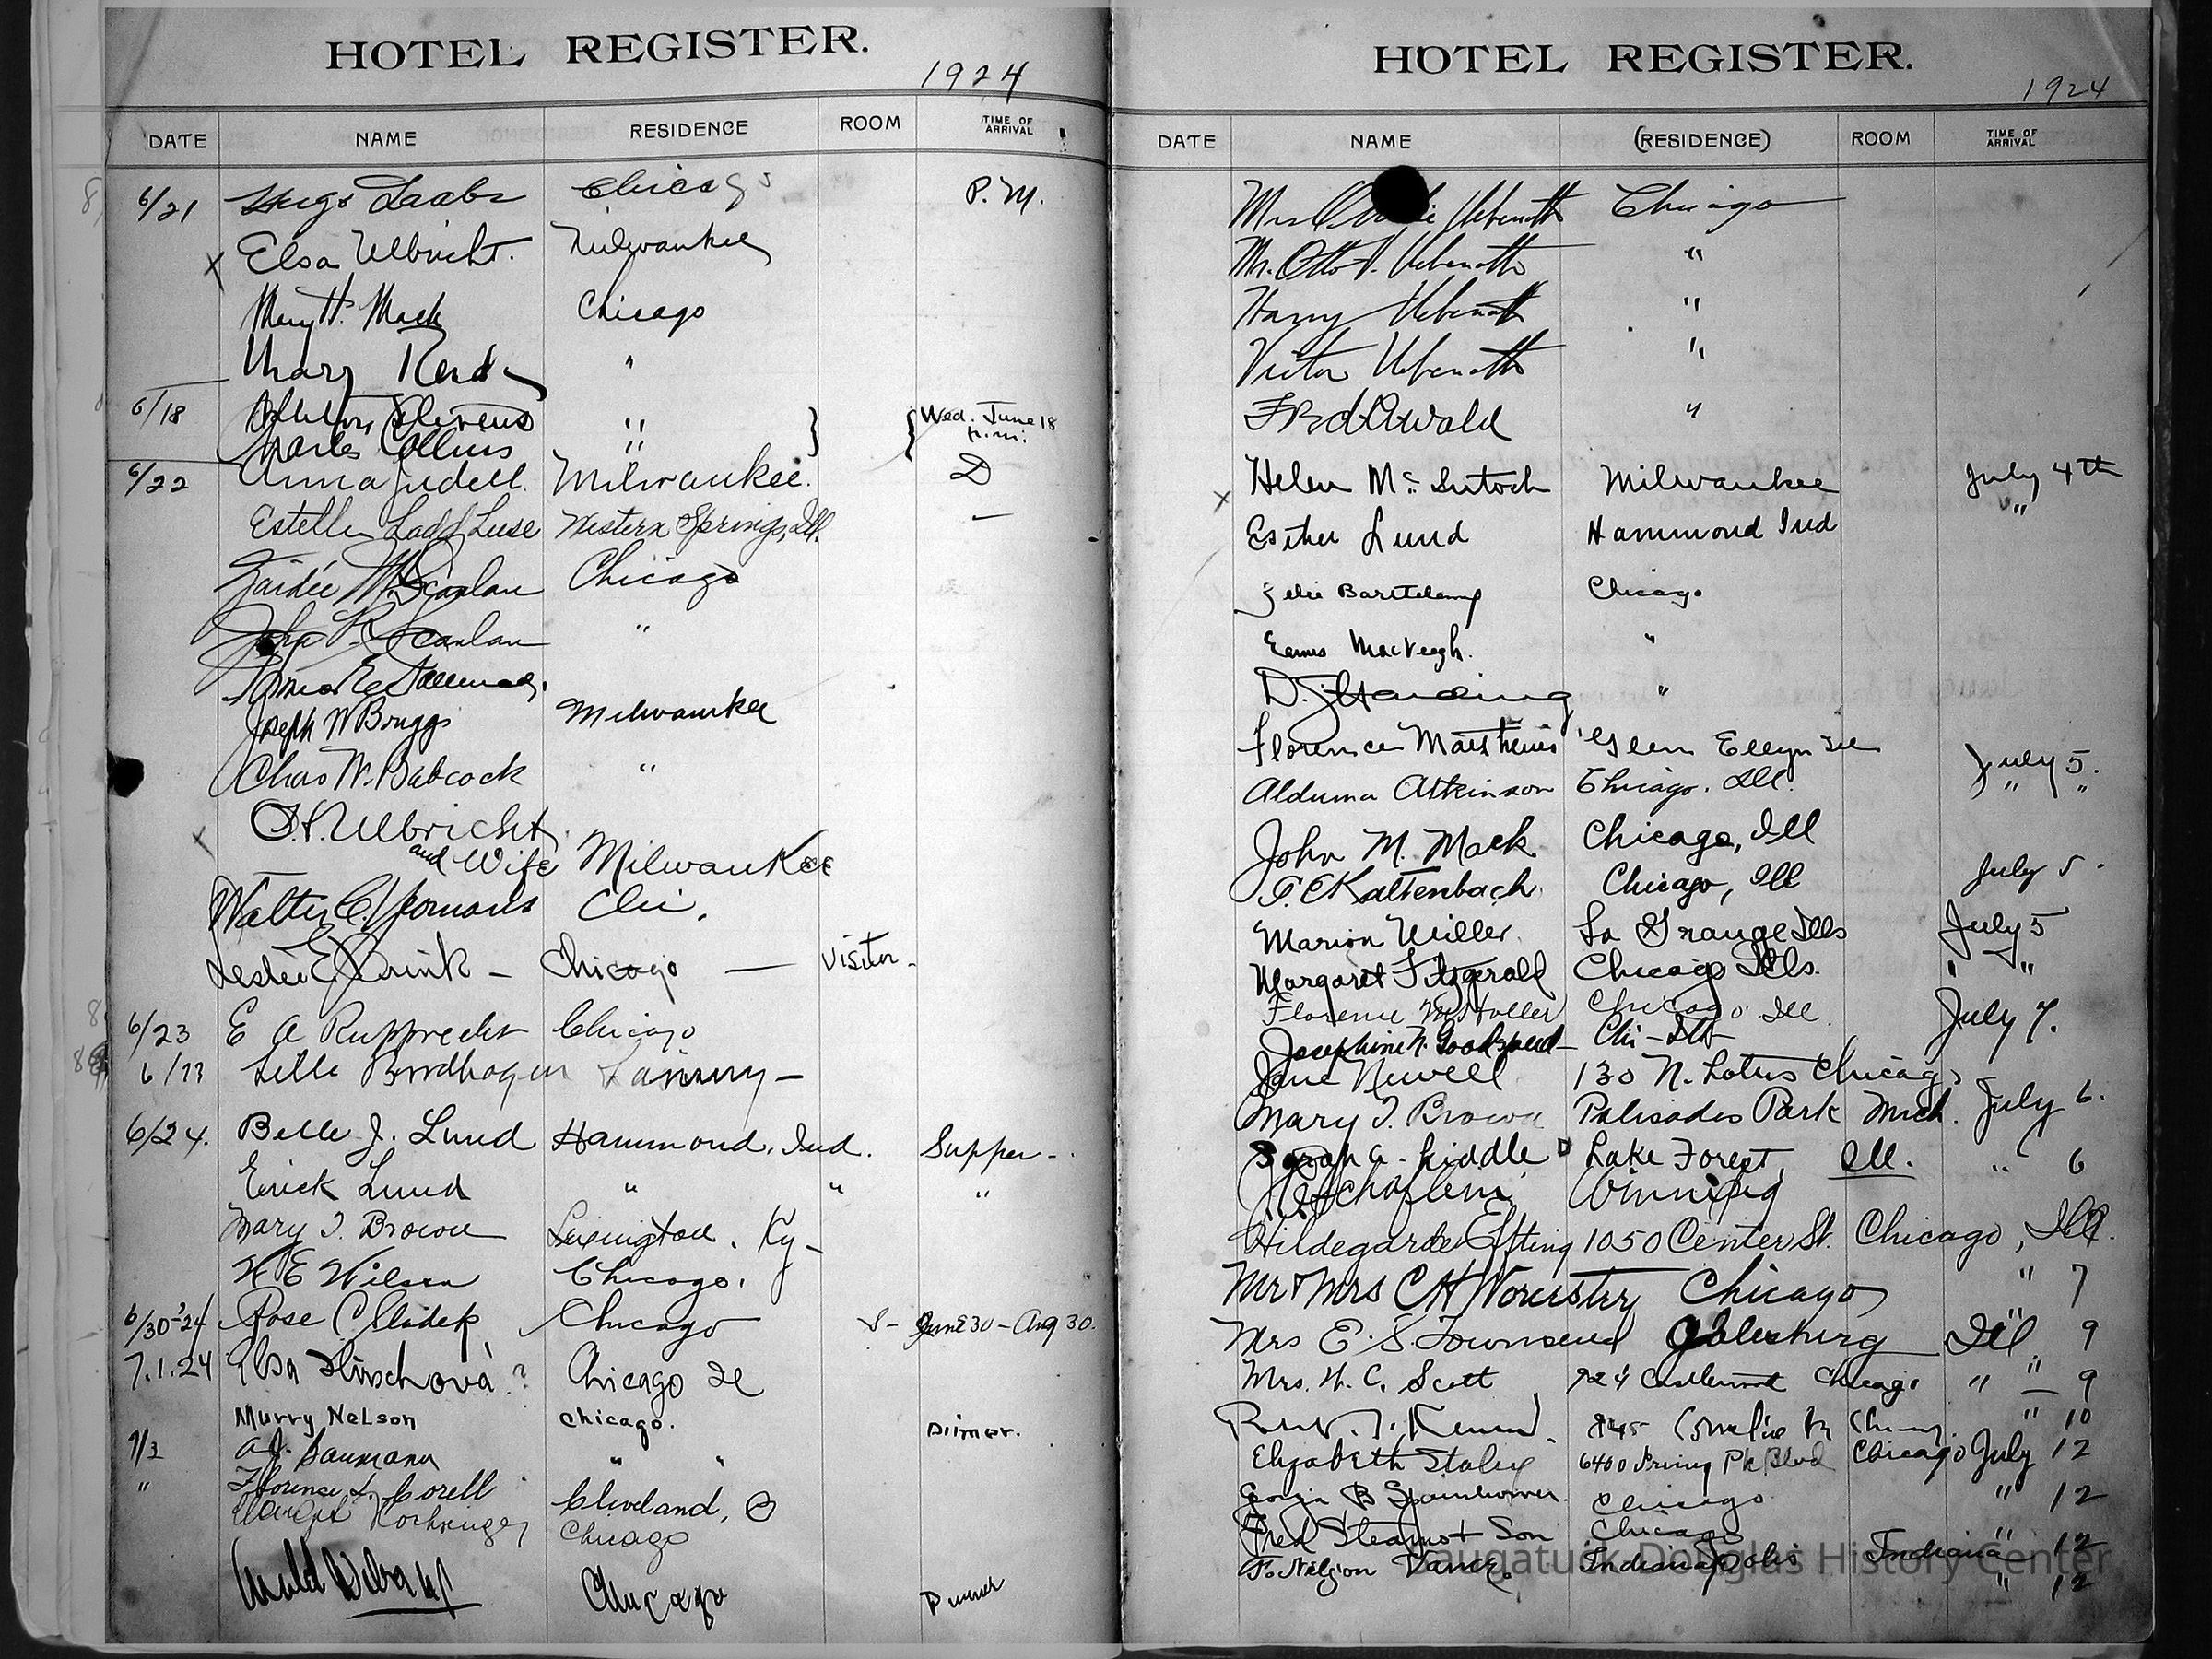 HOTEL REGISTER.
1924
DATE NAME RESIDENCE ROOM TIME OF ARRIVAL
6/21 Hugo Laabs Chicago P.M.
x Elsa Ulbricht. Milwaukee
Mary H. Mack Chicago
Mary "
6/18 Stevens " } { Wed. June 18 p.m.
Charles Collins "
6/22 Anna Judell. Milwaukee. D
Estelle Ladd Luse Western Springs, Ill. —
Zaidée M. Scanlan Chicago
John R. Scanlan "
Joseph W Briggs Milwaukee
Chas W. Babcock "
x Ulbricht
and Wife Milwaukee
Walter C. Yeomans Chi.
Leslie E. — Chicago — Visitor -
6/23 E A Rupprecht Chicago
6/23 Lille
6/24. Belle J. Lund Hammond, Ind. Supper -
Erick Lund " " "
Mary T. Brown Lexington, Ky -
W E Wilson Chicago.
6/30-'24 Rose C. Sladek Chicago S - June 30 - Aug 30.
7.1.24 Elsa ? Chicago Il
Murry Nelson Chicago. Dinner.
7/3 A.J. Baumann " "
" Florence L. Corell Cleveland, O
Chicago
Chicago Dinner
HOTEL REGISTER.
1924
DATE NAME (RESIDENCE) ROOM TIME OF ARRIVAL
Mrs Uebenoth Chicago
Mr. Otto Uebenoth "
Harry Uebenoth "
Victor Uebenoth "
"
x Helen McIntosh Milwaukee July 4th
Esther Lund Hammond Ind "
Zelie Bartelemy Chicago
Eames MacVeagh. "
D. J. Harding "
Florence Matthews Glen Ellyn Ill
Alduma Atkinson Chicago. Ill. July 5.
" "
John M. Mack Chicago, Ill
Kaltenbach. Chicago, Ill July 5.
Marion Miller. La Grange Ills July 5
Margaret Fitzgerald Chicago Ills. " "
Florence Chicago Ill. July 7.
Josephine N. Goodspeed - Chi - Ill
Jane Newell 130 N. Lotus Chicago
Mary T. Brown Palisades Park Mich. July 6.
Sarah G. Liddle Lake Forest, Ill. " 6
Winnipeg
Hildegarde Efting 1050 Center St. Chicago, Ill.
Mr & Mrs C H Worcester Chicago " 7
Mrs E. S. Townsend Galesburg Ill 9
Mrs. W. C. Scott 924 Castlewood Chicago " " 9
" 10
Elizabeth Staley 6400 Irving Pk Blvd Chicago July 12
B Chicago " 12
Fred Stearns + Son Chicago " 12
F. Nelson Vance. Indianapolis Indiana " 12
Saugatuck Douglas History Center